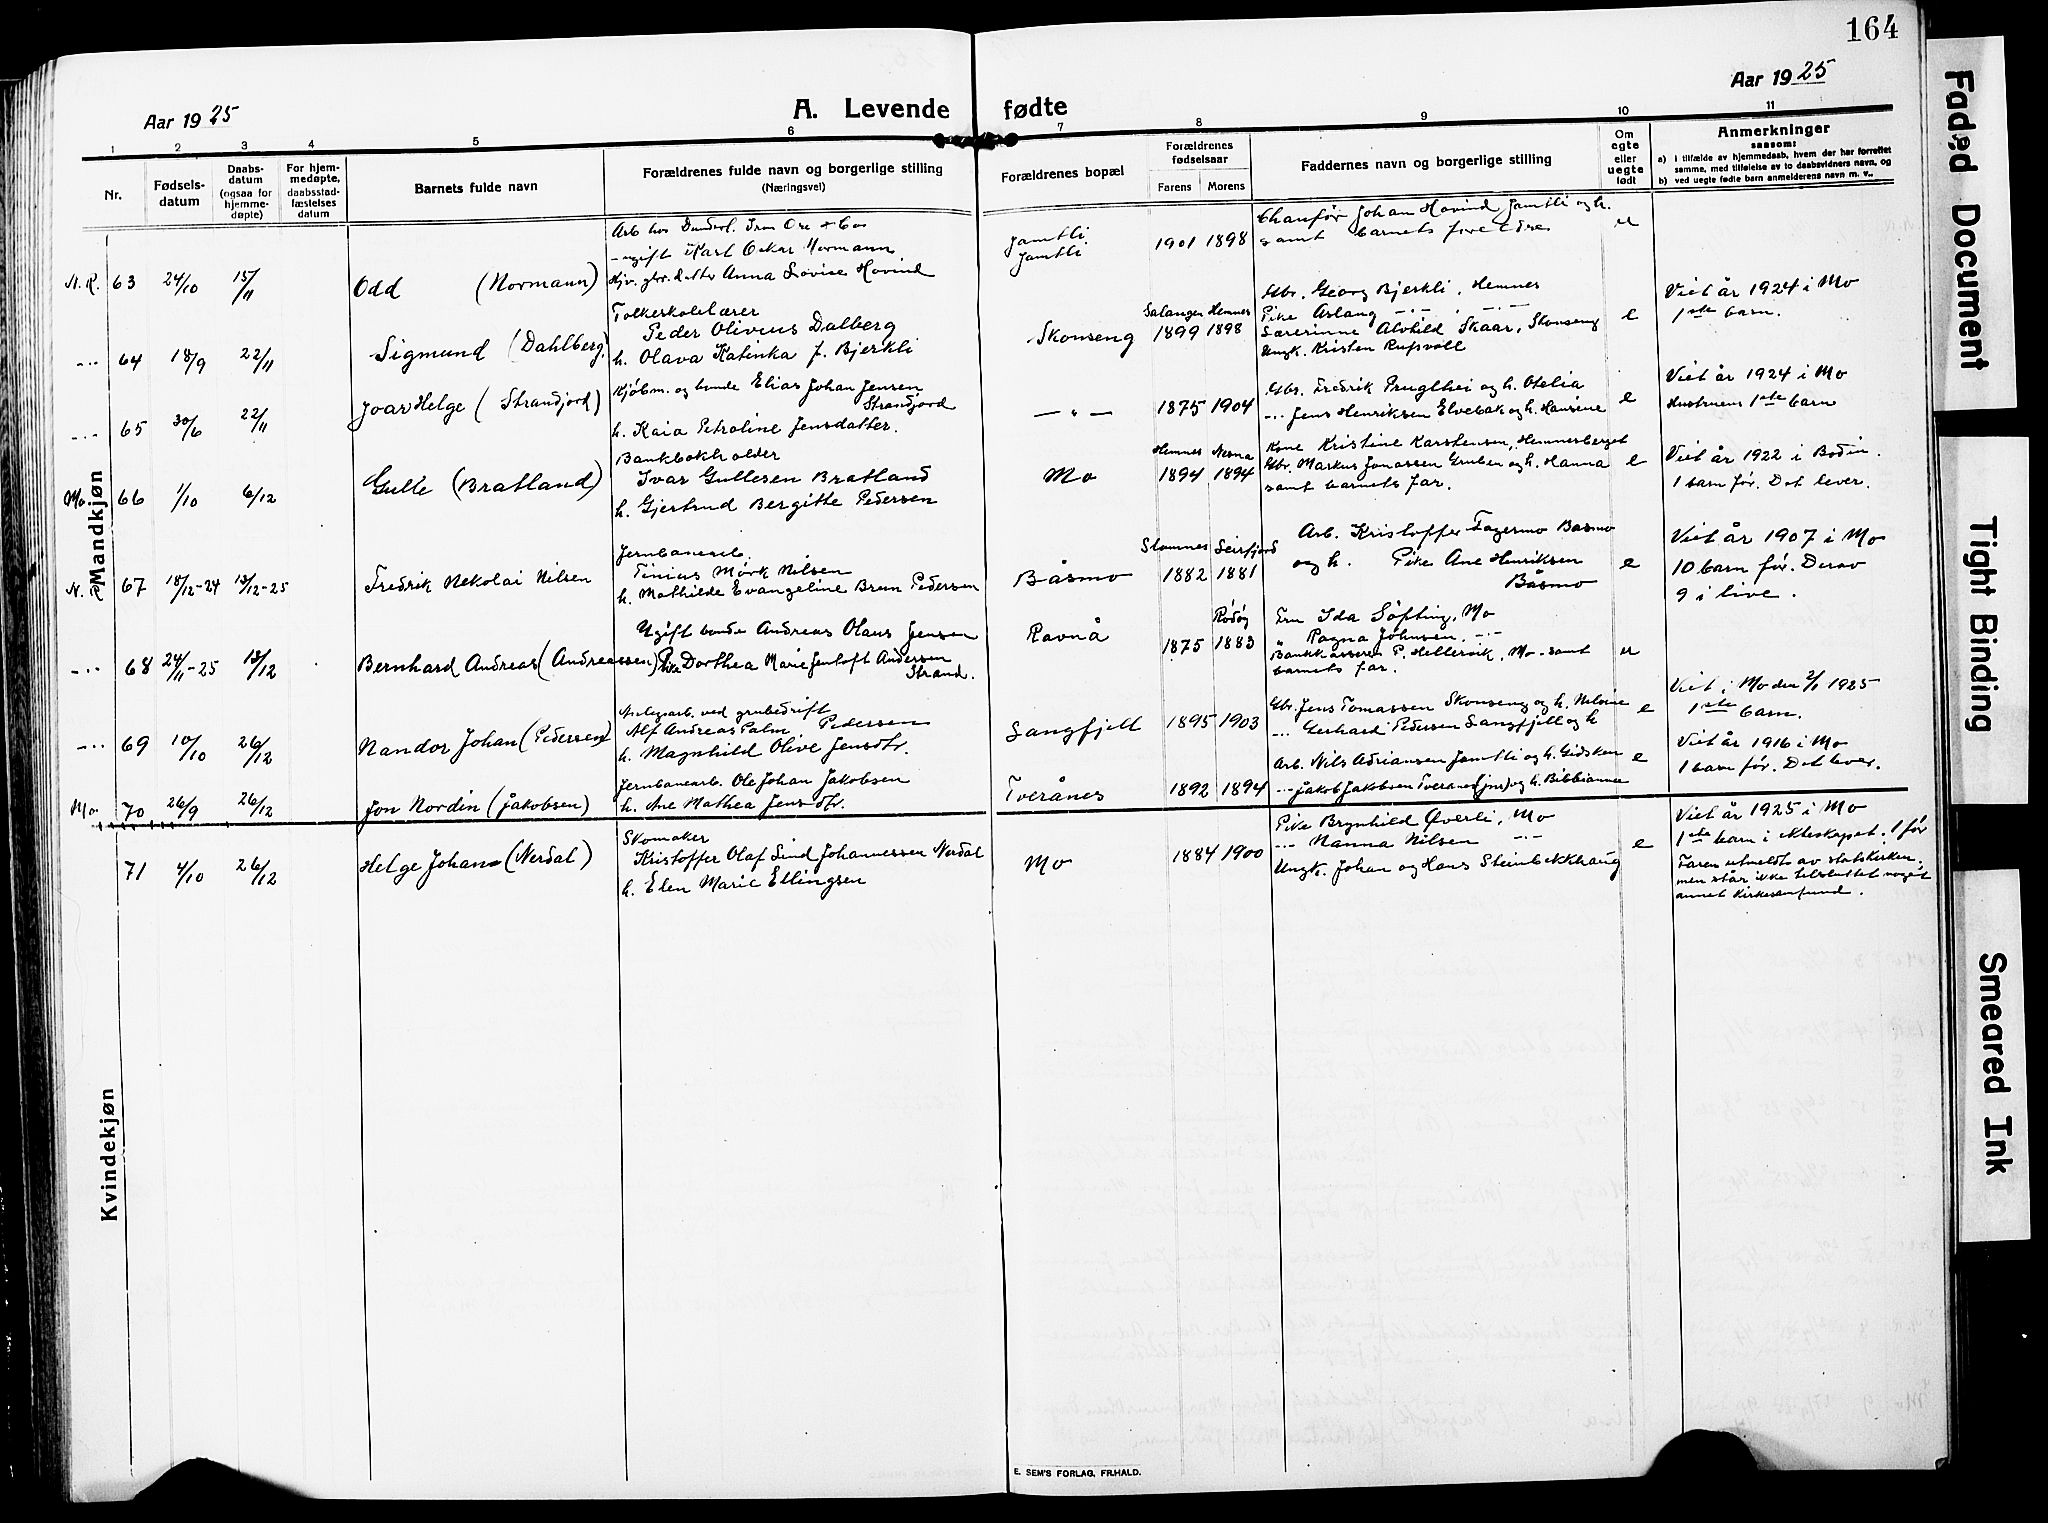 164
Aar 1925
A. Levende fødte
Aar 1925
1 2 3 4 5 6 7 8 9 10 11
Nr.
Fødsels-
datum
Daabs-
datum
(ogsaa for
hjemme-
døpte)
For hjem-
medøpte,
daabsstad-
fæstelses
datum
Barnets fulde navn
Forældrenes fulde navn og borgerlige stilling
(Næringsvei)
Forældrenes bopæl
Forældrenes
fødselsaar
Farens Morens
Faddernes navn og borgerlige stilling
Om
egte
eller
uegte
født
Anmerkninger
saasom:
a) i tilfælde av hjemmedaab, hvem der har forrettet
samme, med tilføielse av to daabsvidners navn, og
b) ved uegte fødte barn anmelderens navn m. v.
Mandkjøn
N.R. 63 24/10 15/11
Odd (Normann)
Arb hos Dunderl. Iron Ore & Co
ugift Karl Oskar Normann
gbr. datter Anna Lovise Hovind
Jamtli
Jamtli
1901 1898
Chauffør Johan Hovind Jamtli og h.
samt barnets foreldre
u
-"- 64 18/9 22/11
Sigmund (Dahlberg)
Folkeskolelærer
Peder Oliveus Dalberg
h. Olava Katinka f. Bjerkli
Skonseng
Salangen Hemnes
1899 1898
Gbr. Georg Bjerkli, Hemnes
Pike Aslaug -"- -"-
Lærerinne Alvhild Skaar, Skonseng
Ungk. Kristen Rufsvoll
e
Viet år 1924 i Mo
1ste barn.
-"- 65 30/6 22/11
Joar Helge (Strandjord)
Kjøbm. og bonde Elias Johan Jensen
Strandjord
h. Kaia Petroline Jensdatter.
-"-
1875 1904
Gbr. Fredrik Pruglhei og h. Otelia
-"- Jens Henriksen Elvebak og h. Hansine
e
Viet år 1924 i Mo
Hustruens 1ste barn
Mo 66 1/10 6/12
Gulle (Bratland)
Bankbokholder
Ivar Gullesen Bratland
h. Gjertrud Bergitte Pedersen
Mo
Hemnes Nesna
1894 1894
Kone Kristine Karstensen, Hemnesberget
Gbr. Markus Jonassen Gruben og h. Hanna
samt barnets far.
e
Viet år 1922 i Bodin.
1 barn før. Det lever.
N.R. 67 18/12-24 13/12-25
Fredrik Nekolai Nilsen
Jernbanearb.
Tinius Mørk Nilsen
h. Mathilde Evangeline Brun Pedersen
Båsmo
Stamnes Leirfjord
1882 1881
Arb. Kristoffer Fagermo Båsmo
og h. Pike Ane Henriksen
Båsmo
e
Viet år 1907 i Mo
10 barn før. Derav
9 i live.
-"- 68 24/11-25 13/12
Bernhard Andreas (Andreassen)
Ugift bonde Andreas Olaus Jensen
Pike Dorthea Marie Jentoft Andersen
Strand.
Ravnå
Rødøy
1875 1883
Fru Ida Søfting, Mo
" Ragna Johnsen, -"-
Bankkasserer P. Hellesvik, Mo - samt
barnets far.
u
-"- 69 10/10 26/12
Nandor Johan (Pedersen)
Anlegsarb. ved grubedrift
Alf Andreas Palm Pedersen
h. Magnhild Olive Jensdtr.
Langfjell
1895 1903
Gbr. Jens Tomassen Skonseng og h. Nilsine
-"- Gerhard Pedersen Langfjell og h
e
Viet i Mo den 2/1 1925
1ste barn.
Mo 70 26/9 26/12
Jon Nordin (Jakobsen)
Jernbanearb. Ole Johan Jakobsen
h. Ane Mathea Jensdtr.
Tverånes
1892 1894
Arb. Nils Adriansen Jamtli og h. Gidsken
-"- Jakob Jakobsen Tverånes (jnr) og h. Bibbianna
e
Viet år 1916 i Mo
1 barn før. Det lever.
71 4/10 26/12
Helge Johan (Nerdal)
Skomaker
Kristoffer Olaf Lind Johannessen Nerdal
h. Elen Marie Ellingsen
Mo
1884 1900
Pike Brynhild Øverli, Mo
-"- Nanna Nilsen -"-
Ungk. Johan og Hans Steinbekkhaug
e
Viet år 1925 i Mo
1ste barn i ekteskapet. 1 før
Faren utmeldt av statskirken,
men står ikke tilsluttet noget
annet kirkesamfund.
Kvindekjøn
E. SEM'S FORLAG, FR.HALD.
Faded Document
Tight Binding
Smeared Ink